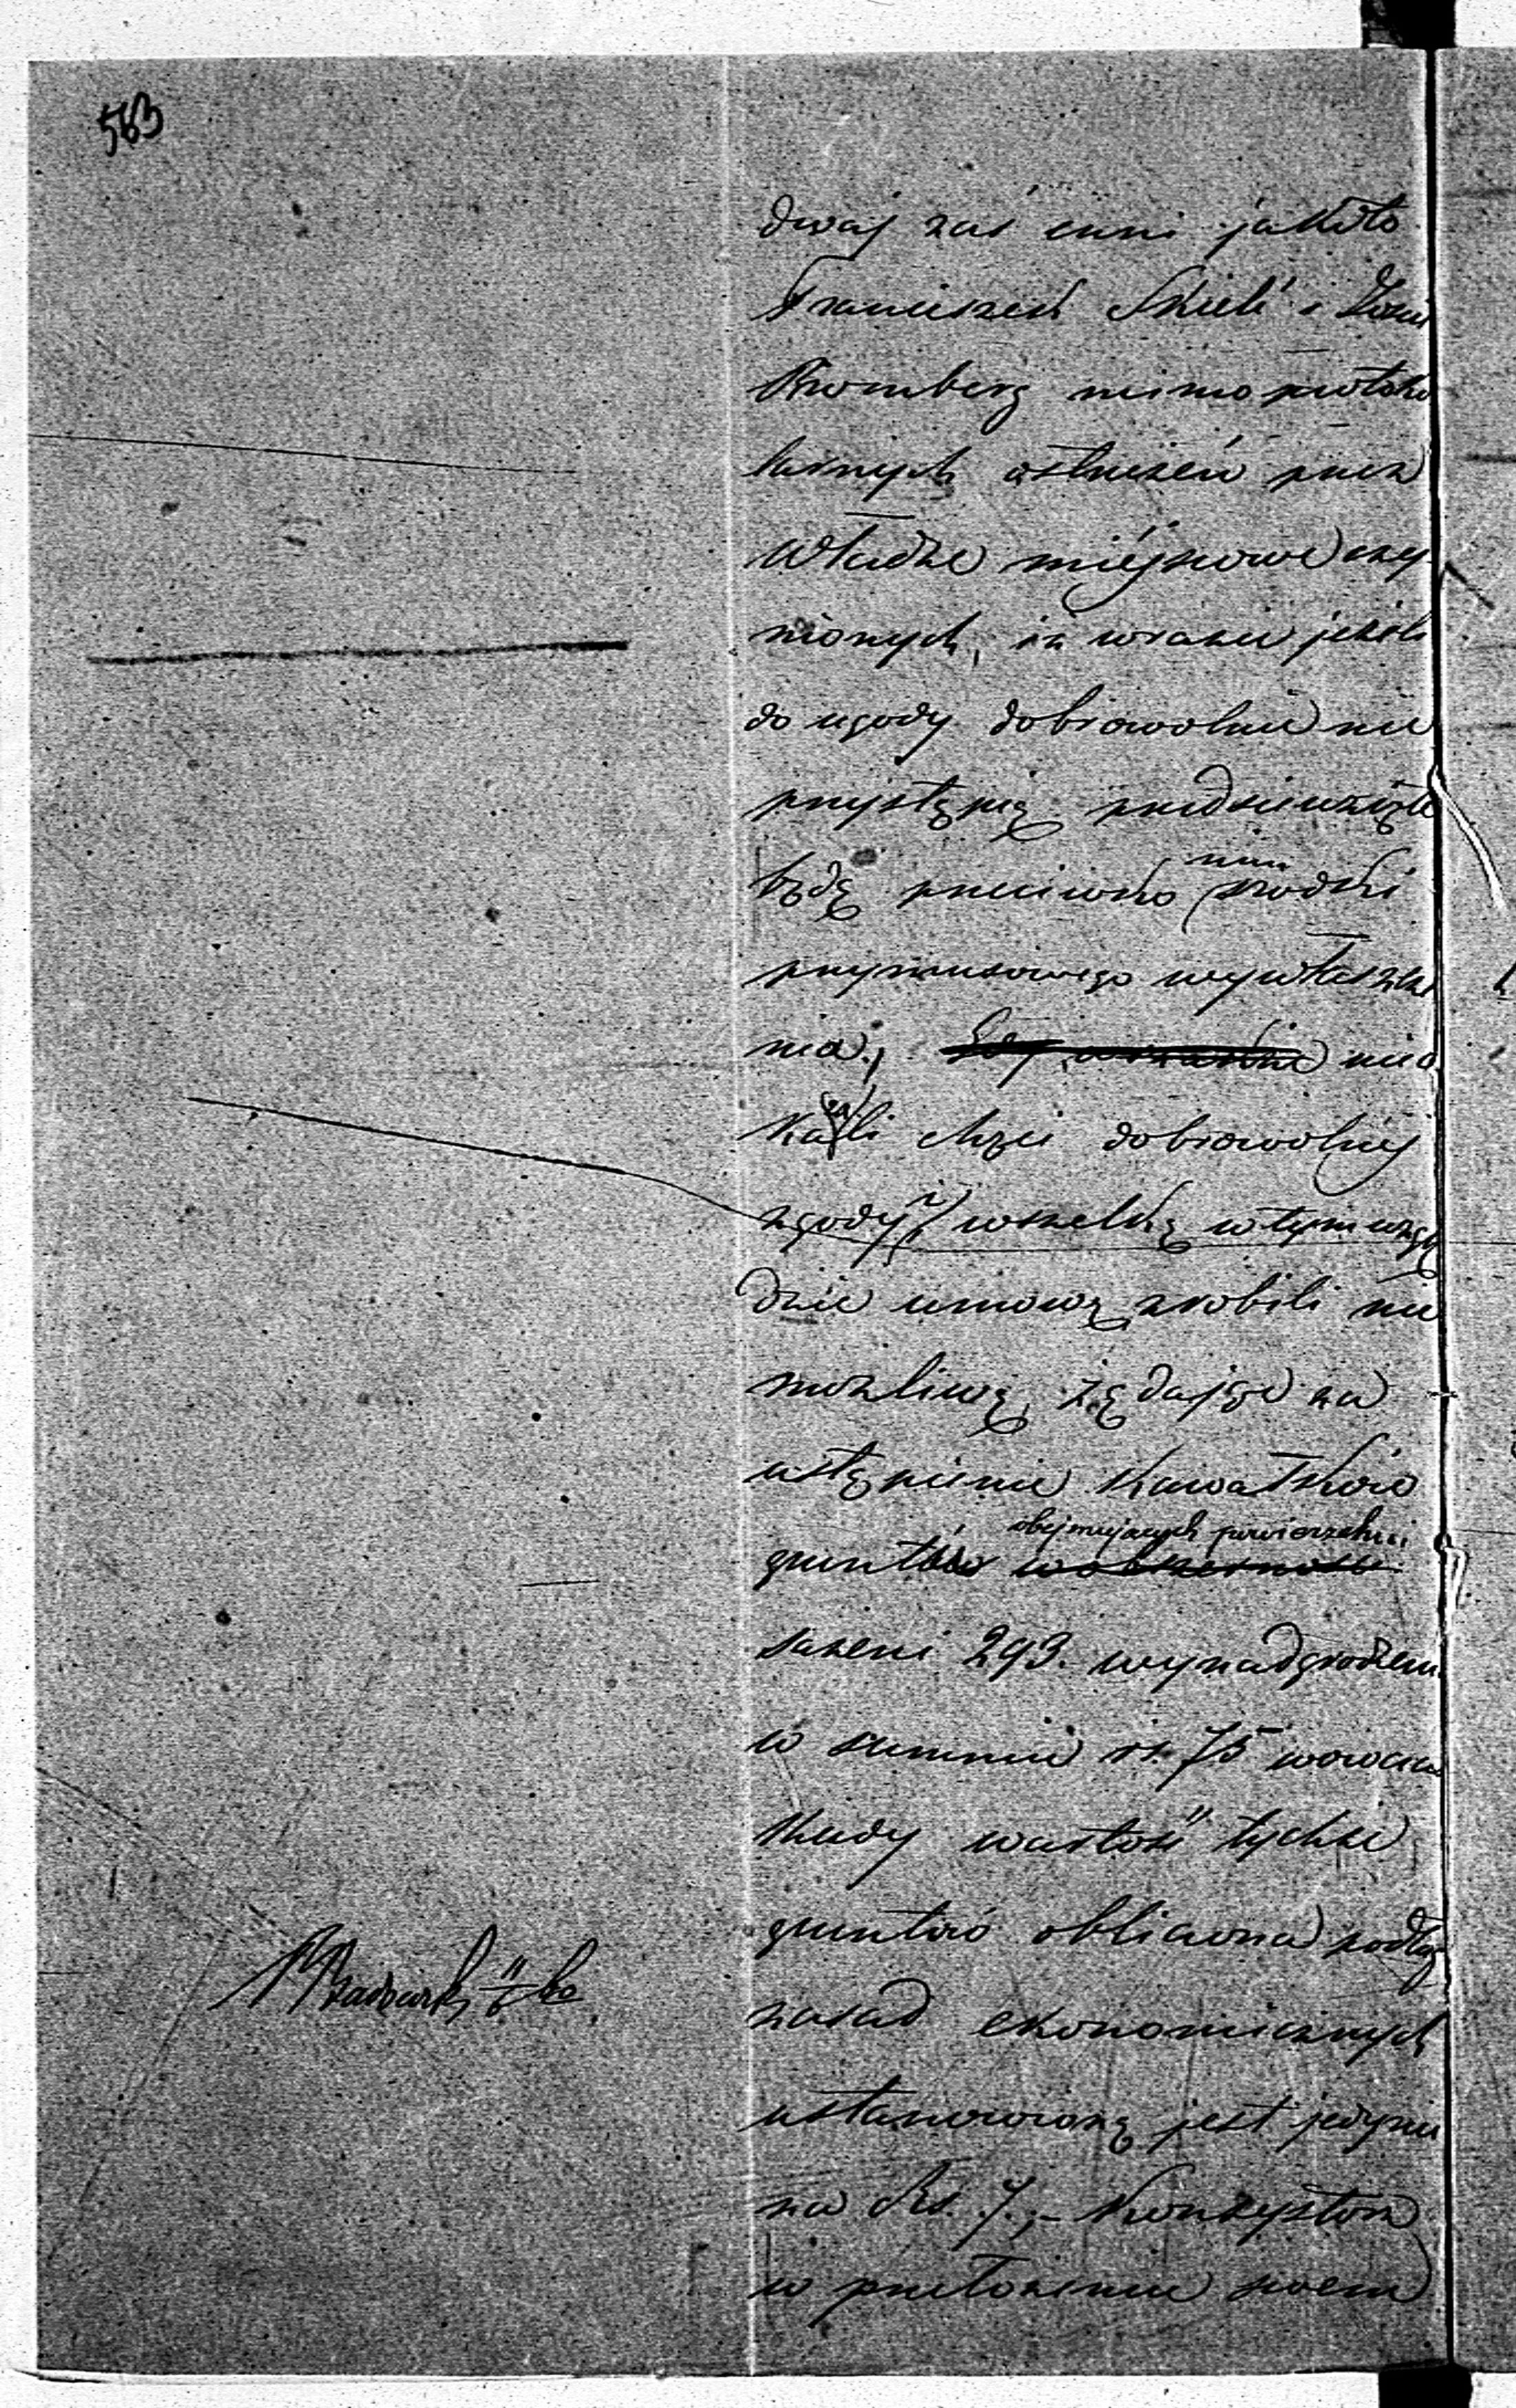 563
dwaj zaś inni jakoto
Franciszek Skiell i
Bromberg mimo protoko
larnych ostrzeżeń przez
Władze miejscowe czy
nionych, iż wrazie jeżeli
do ugody dobrowolnie nie
przystąpią przedsiewzięte
będą przeciwko nim środki
przymusowego wywłaszcze
nia; nieo
kazali chęci dobrowolnej
zgody i wszelką w tym wzglę
dzie umowę zrobili nie
możliwą, żądając za
ustąpienie kawałków
gruntów obejmujących powierzchni
sażeni 293. wynadgrodzenia
w summie rs. 75 wówczas
kiedy wartość tychże
gruntów obliczona podług
zasad ekonomicznych
ustanowioną jest jedynie
na Rs. 7.;- Konsystorz
w przełożeniu swem